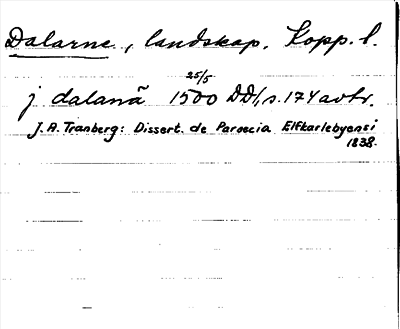 Dalarne, landskap. Kopp. l.
25/5
j dalanā 1500 DD1, s. 174 avtr.
J. A. Tranberg: Dissert. de Paroecia Elfkarlebyensi
1838.